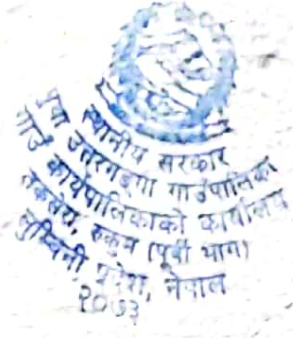 स्थानीय सरकार
पुथा उत्तरगङ्गा गाउँपालिका
गाउँ कार्यपालिकाको कार्यालय
तकसेरा, रुकुम (पूर्वी भाग)
लुम्बिनी प्रदेश, नेपाल
२०७३